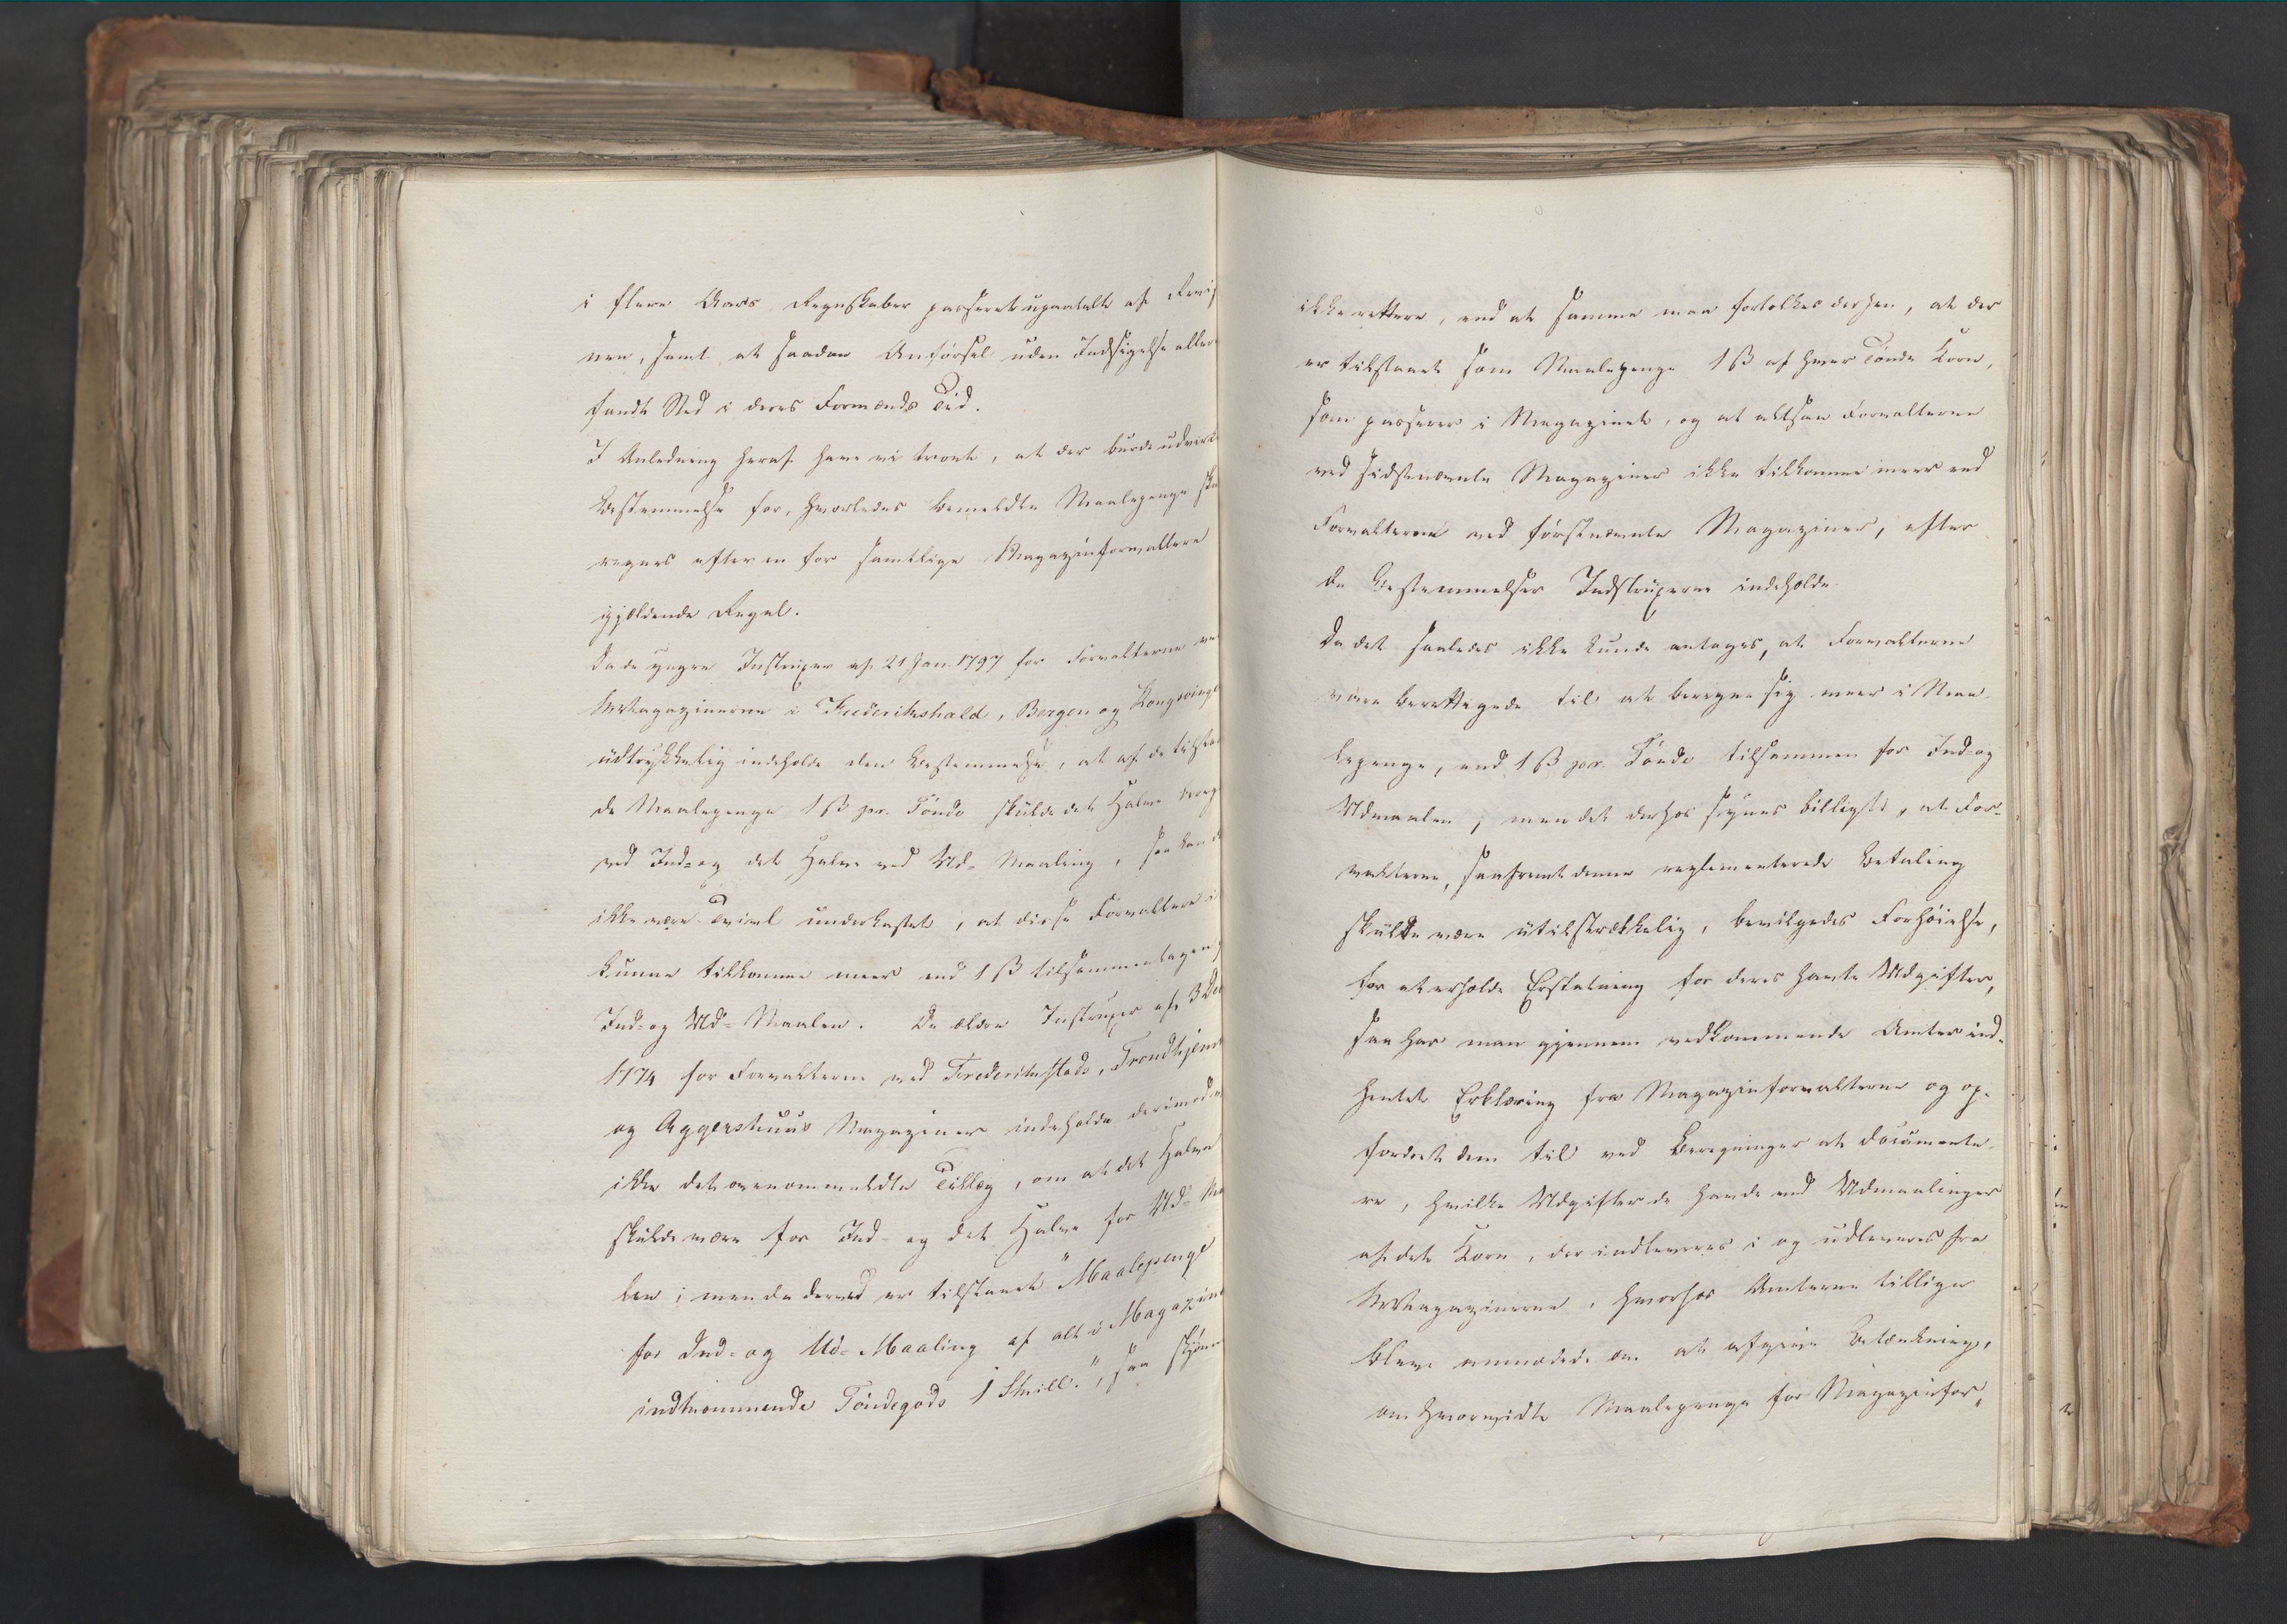 i flere Aars Regnskaber passeret upaatalt af Revis
nen, samt at saadan Anførsel uden Indsigelse aller
fandt Sted i deres Formænds Tid.
I Anledning heraf have vi troet, at der burde udvirk
Bestemmelse for, hvorledes bemeldte Maalepenge ska
regnes efter en for samtlige Magazinforvaltere
gjældende Regel.
Da de yngre Instruxer af 21 Jan. 1797 for Forvalterne ve
Magazinerne i Frederikshald, Bergen og Kongsvinge
udtrykkelig indeholde den Bestemmelse, at af de tilsta
de Maalepenge 1 ß pr. Tønde skulde det Halve bereg
ved Ind- og det Halve ved Ud-Maaling, saa kan d
ikke være Tvivl underkastet, at disse Forvaltere i
kunne tilkomme meer end 1 ß tilsammentagen
Ind- og Ud-Maalen. De ældre Instruxer af 3 Dec
1774 for Forvalterne ved Frederikstads, Trondhjems
og Aggershuus Magaziner indeholde derimod
ikke det ovenommeldte Tillæg, om at det Halve
skulde være for Ind- og det Halve for Ud-Ma
len; men da derved er tilstaaet "Maalepenge
for Ind- og Ud-Maaling af alt i Magazin
indkommende Tøndegods 1 Skill.", saa skjøn
ikke rettere, end at samme maa fortolkes derhen, at der
er tilstaaet som Maalepenge 1 ß af hver Tønde Korn,
som passerer i Magazinet, og at altsaa Forvalterne
ved sidstnævnte Magaziner ikke tilkomme meer end
Forvalterne ved førstnævnte Magaziner, efter
de Bestemmelser Instruxerne indeholde.
Da det saaledes ikke kunde antages, at Forvalterne
vare berettigede til at beregne sig meer i Maa-
lepenge, end 1 ß pr. Tønde tilsammen for Ind- og
Udmaalen; men det derhos synes billigst, at For-
valterne, saafremt denne reglementerede Betaling
skulde være utilstrækkelig, bevilgedes Forhøielse,
for at erholde Erstatning for deres havte Udgifter,
saa har man gjennem vedkommende Amter ind-
hentet Erklæring fra Magazinforvalterne og op-
fordret dem til ved Beregninger at documente-
re, hvilke Udgifter de havde ved Udmaalinger
af det Korn, der indleveres i og udleveres fra
Magazinerne, hvorhos Amterne tillige
bleve anmodede om at afgive Betænkning,
om hvorvidt Maalepenge for Magazinfor-